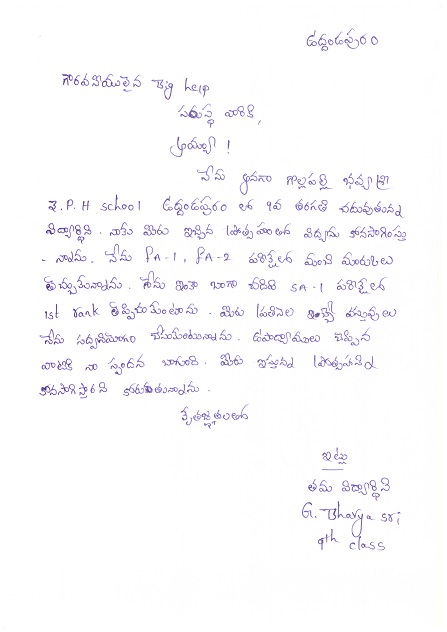 ఉద్దండపురం
గౌరవనీయులైన Big help
సంస్థ వారికి,
అయ్యా !
నేను అనగా గొల్లపల్లి భవ్యశ్రీ
Z.P.H school ఉద్దండపురం లో 9వ తరగతి చదువుతున్న
విద్యార్థిని. నాకు మీరు ఇచ్చిన ప్రోత్సాహంతో విద్యను కొనసాగిస్తు
-న్నాను. నేను FA-1, FA-2 పరీక్షలలో మంచి మార్కులు
తెచ్చుకున్నాను. నేను ఇంకా బాగా చదివి SA-1 పరీక్షలలో
1st rank తెచ్చుకుంటాను. మీరు ప్రతినెల ఇచ్చే వస్తువులు
నేను సద్వినియోగం చేసుకుంటున్నాను. ఉపాధ్యాయులు చెప్పిన
వాటికి నా స్పందన బాగుంది. మీరు ఇస్తున్న ప్రోత్సాహాన్ని
కొనసాగిస్తారని కోరుకుతున్నాను.
కృతజ్ఞతలతో
ఇట్లు
తమ విద్యార్థిని
G. Bhavya sri
9th class